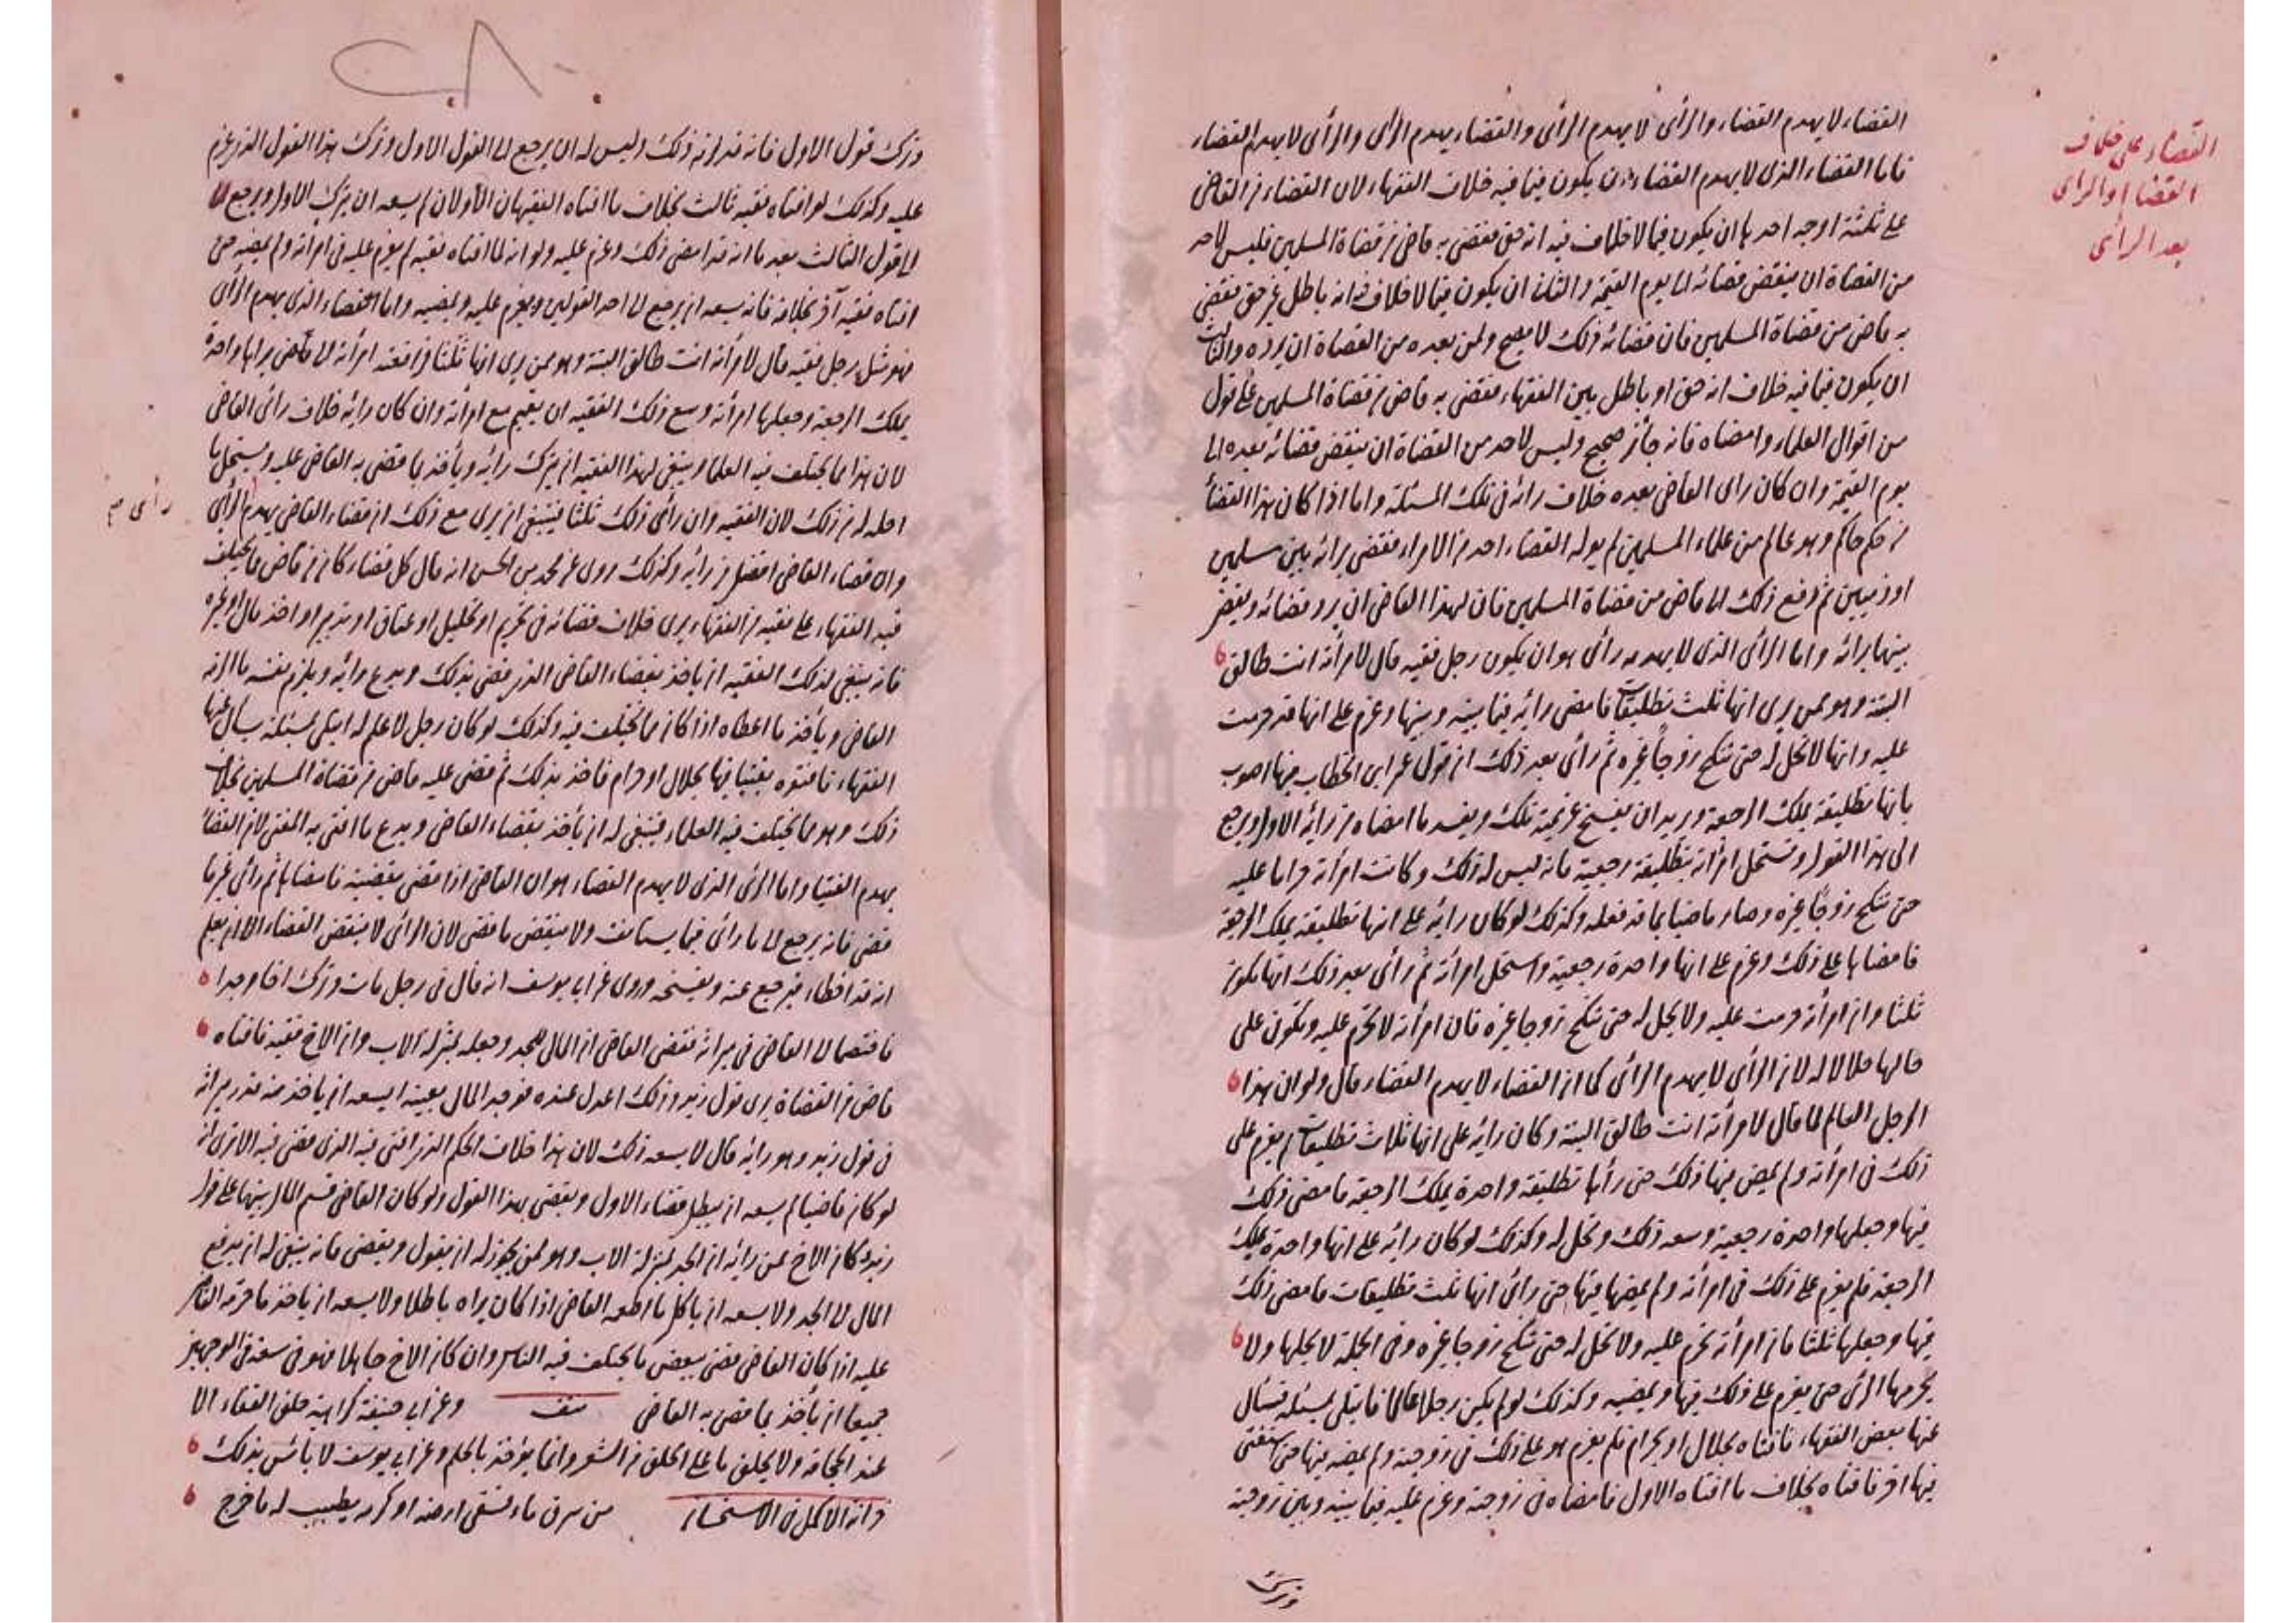 القضاء على خلاف
القضاء والراى
بعد الرأى
القضاء لا يهدم القضاء والرأى لا يهدم الرأى والقضاء يهدم الرأى والرأى لا يهدم القضاء
فاما القضاء الذى لا يهدم القضاء ان يكون فيما فيه خلاف الفقهاء لان القضاء من القاضى
على ثلثة اوجه احدها ان يكون فيما لا خلاف فيه انه حق فقضى به قاض من قضاة المسلمين فليس لاحد
من القضاة ان ينقض قضائه الى يوم القيمة والثانى ان يكون فيما لا خلاف فيه انه باطل غير حق فقضى
به قاض من قضاة المسلمين فان قضائه ذلك لا يصح ولمن بعده من القضاة ان يرده والثالث
ان يكون فيما فيه خلاف انه حق او باطل بين الفقهاء فقضى به قاض من قضاة المسلمين على قول
من اقوال العلماء وامضاه فانه جائز صحيح وليس لاحد من القضاة ان ينقض قضائه بعده الى
يوم القيمة وان كان راى القاضى بعده خلاف رائه فى تلك المسئلة واما اذا كان هذا القضاء
من حكم حاكم وهو عالم من علماء المسلمين لم يوله القضاء احد من الامراء فقضى برائه بين مسلمين
او ذميين ثم رفع ذلك الى قاض من قضاة المسلمين فان لهذا القاضى ان يرد قضائه ويقضى
بينهما برائه واما الرأى الذى لا يهدمه رأى هو ان يكون رجل فقيه قال لامرأته انت طالق
البتة وهو ممن يرى انها ثلث تطليقات فامضى رايه فيما بينه وبينها وعزم على انها قد حرمت
عليه وانها لا تحل له حتى تنكح زوجا غيره ثم رأى بعد ذلك ان قول عمر ابن الخطاب فيها اصوب
بانها تطليقة يملك الرجعة ويريد ان يفسخ عزيمته تلك ويفسد ما امضاه من رايه الاول ويرجع
الى هذا القول وتستحل امرأته بتطليقة رجعية فانه ليس له ذلك وكانت امرأته حراما عليه
حتى تنكح زوجا غيره وصار ماضيا بما قد فعله وكذلك لو كان رايه على انها تطليقة يملك الرجعة
فامضاها على ذلك وعزم على انها واحدة رجعية واستحل امرأته ثم رأى بعد ذلك انها تكون
ثلثا وان امرأته حرمت عليه ولا يحل له حتى تنكح زوجا غيره فان امرأته لا تحرم عليه وتكون على
حالها حلالا له لان الرأى لا يهدم الرأى كما ان القضاء لا يهدم القضاء قال ولو ان هذا
الرجل العالم لما قال لامرأته انت طالق البتة وكان رايه على انها ثلاث تطليقات لم يعزم على
ذلك فى امرأته ولم يمض فيها ذلك حتى رأها تطليقة واحدة يملك الرجعة فامضى ذلك
فيها وجعلها واحدة رجعية وسعه ذلك وتحل له وكذلك لو كان رايه على انها واحدة يملك
الرجعة فلم يعزم على ذلك فى امرأته ولم يمضها فيها حتى رأى انها ثلث تطليقات فامضى ذلك
فيها وجعلها ثلثا فان امرأته تحرم عليه ولا تحل له حتى تنكح زوجا غيره وفى الجملة لا يحلها ولا
يحرمها الرأى حتى يعزم على ذلك فيها ويمضيه وكذلك لو لم يكن رجلا عالما فابتلى بمسئلة فسأل
عنها بعض الفقهاء فافتاه بحلال او بحرام فلم يعزم هو على ذلك فى زوجته ولم يمضه فيها حتى استفتى
فيها اخر فافتاه بخلاف ما افتاه الاول فامضاه فى زوجته وعزم عليه فيما بينه وبين زوجته
وترك
وترك قول الاول فانه قد لزمه ذلك وليس له ان يرجع الى القول الاول وترك هذا القول الذى عزم
عليه وكذلك لو افتاه فقيه ثالث بخلاف ما افتاه الفقيهان الاولان لم يسعه ان يترك الاول ويرجع
الى قول الثالث بعد ما انه قد امضى ذلك وعزم عليه ولو انه لما افتاه فقيه لم يعزم عليه فى امرأته ولم يمضه حتى
افتاه فقيه آخر بخلافه فانه يسعه ان يرجع الى احد القولين ويعزم عليه ويمضيه واما القضاء الذى يهدم الرأى
فهو مثل رجل فقيه قال لامرأته انت طالق البتة وهو ممن يرى انها ثلثا فرافعته امرأته الى قاض يراها واحدة
يملك الرجعة وجعلها امرأته وسع ذلك الفقيه ان يقيم مع امرأته وان كان رايه خلاف رائ القاضى
لان هذا مما يختلف فيه العلماء وينبغى لهذا الفقيه ان يترك رايه ويأخذ بما قضى به القاضى عليه ويستحل ما
احله له من ذلك لان الفقيه وان رأى ذلك ثلثا فينبغى ان يرى مع ذلك ان قضاء القاضى يهدم الرأى
رأى صح
وان قضاء القاضى افضل من رأيه وكذلك روى عن محمد بن الحسن انه قال كل قضاء كان من قاض مما يختلف
فيه الفقهاء على فقيه من الفقهاء يرى خلاف قضائه فى تحريم او تحليل او عتاق او تدبير او اخذ مال او غيره
فانه ينبغى لذلك الفقيه ان ياخذ بقضاء القاضى الذى قضى بذلك ويدع رايه ويلزم نفسه ما الزمه
القاضى ويأخذ ما اعطاه اذا كان مما يختلف فيه وكذلك لو كان رجل لا علم له ابتلى بمسئلة يسأل عنها
الفقهاء فافتوه بفتيا فيها بحلال او حرام فاخذ بذلك ثم قضى عليه قاض من قضاة المسلمين بخلاف
ذلك وهو مما يختلف فيه العلماء فينبغى له ان يأخذ بقضاء القاضى ويدع ما افتى به المفتى لان القضاء
يهدم الفتيا واما الرأى الذى لا يهدم القضاء هو ان القاضى اذا قضى بقضية فامضاها ثم رأى غير ما
قضى فانه يرجع الى ما رأى فيما يستانف ولا ينقض ما قضى لان الرأى لا ينقض القضاء الا ان يعلم
انه قد اخطاء فيرجع عنه ويفسخه وروى عن ابى يوسف انه قال فى رجل مات وترك اخا وجدا
فاختصما الى القاضى فى ميراثه فقضى القاضى ان المال للجد وجعله بمنزلة الاب وان الاخ فقيه فافتاه
قاض من القضاة يرى قول زيد وذلك اعدل عنده فوجد المال بعينه ايسعه ان ياخذ منه قدر ميراثه
فى قول زيد وهو رايه قال لا يسعه ذلك لان هذا خلاف الحكم الذى افتى فيه الذى قضى فيه الا ترى انه
لو كان قاضيا لم يسعه ان يبطل قضاء الاول ويقضى بهذا القول ولو كان القاضى قسم المال بينهما على قول
زيد وكان الاخ ممن رايه ان الجد بمنزلة الاب وهو ممن يجوز له ان يقول ويقضى فانه ينبغى له ان يدفع
المال الى الجد ولا يسعه ان ياكل ما اطعمه القاضى اذا كان يراه باطلا ولا يسعه ان ياخذ ما حرمه القاضى
عليه اذا كان القاضى قضى ببعض ما يختلف فيه الناس وان كان الاخ جاهلا فهو فى سعة فى الوجهين
جميعا ان يأخذ بما قضى به القاضى وعن ابى حنيفة كراهية حلق القفاء الا
عند الحجامة ولا يحلق ما على الحلق من الشعر وانما يؤخذ بالجلم وعن ابى يوسف لا بائس بذلك
من سرق ماء فسقى ارضه او كرمه يطيب له ما خرج